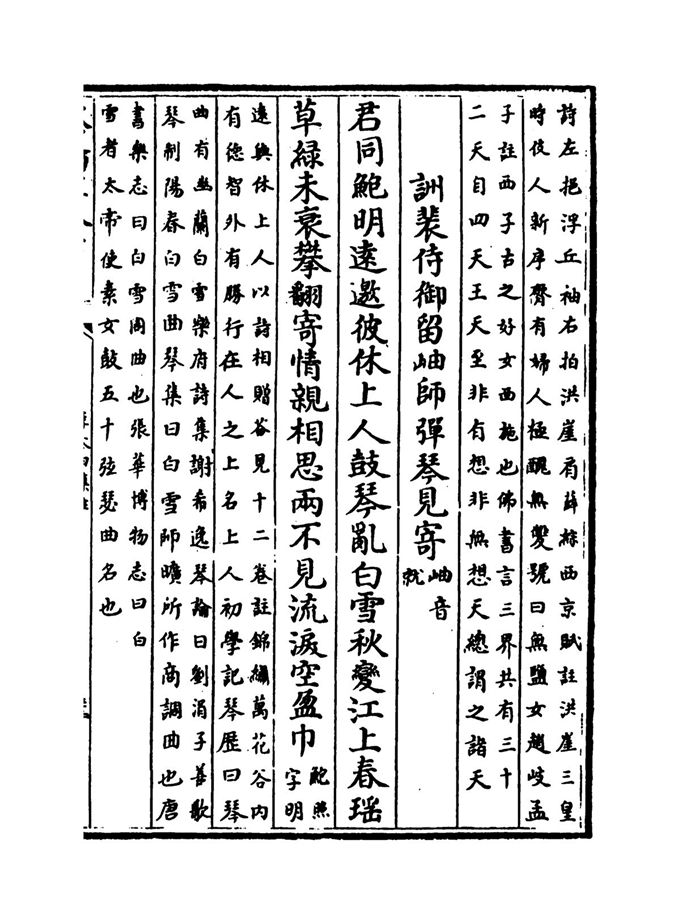 詩左挹浮丘袖右拍洪崖肩薛綜西京賦註洪崖三皇
時伎人新序齊有婦人極醜無雙號曰無鹽女趙岐孟
子註西子古之好女西施也佛書言三界共有三十
二天自四天王天至非有想非無想天總謂之諸天
詶裴侍御留岫師彈琴見寄
岫音
就
君同鮑明遠邀彼休上人鼓琴亂白雪秋變江上春瑶
草緑未衰攀翻寄情親相思兩不見流淚空盈巾
鮑照
字明
遠與休上人以詩相贈荅見十二卷註錦繡萬花谷内
有德智外有勝行在人之上名上人初學記琴歴曰琴
曲有幽蘭白雪樂府詩集謝希逸琴論曰劉涓子善歌
琴制陽春白雪曲琴集曰白雪師曠所作商調曲也唐
書樂志曰白雪周曲也張華博物志曰白
雪者太帝使素女鼓五十弦瑟曲名也